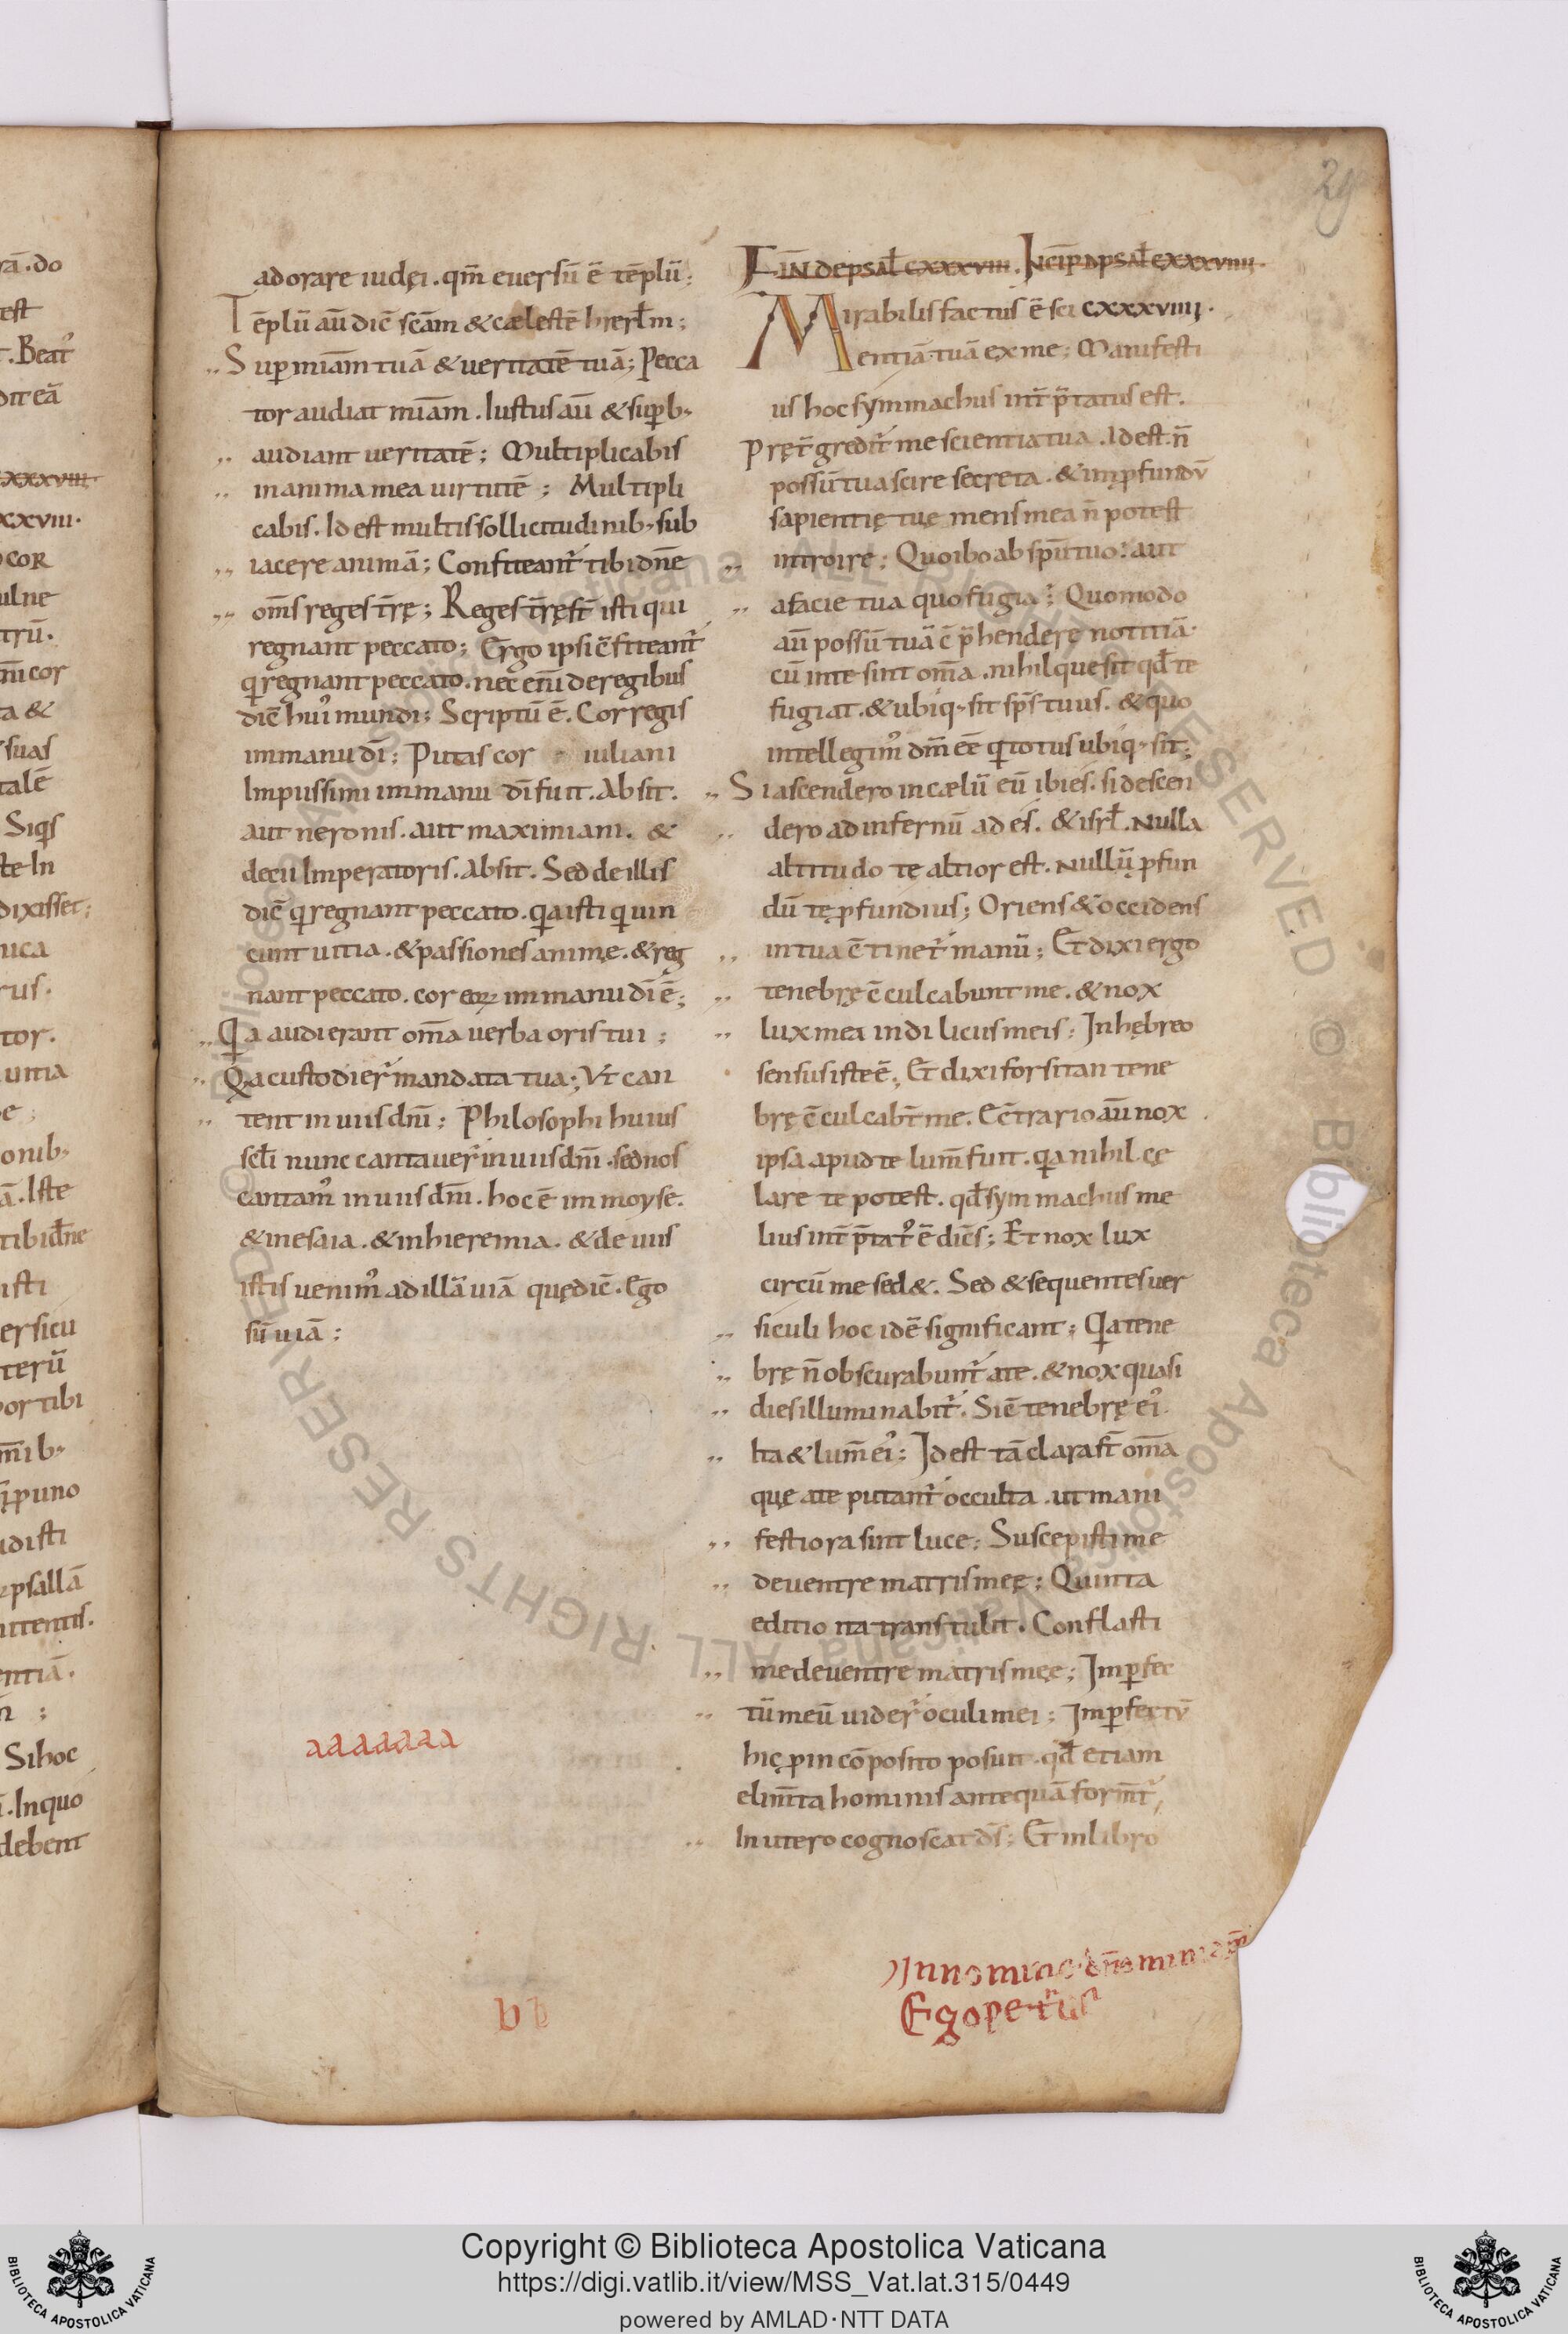 rā. do
est
. Beat᷒
dit eā
xxxviiii.
cxxviii.
cor
ulne
trū.
m̄ cor
ta &
suas
talē
Siq̄s
te In
dixisset;
uca
rus.
tor.
uitia
e;
onib;
ā. Iste
tibi dn̄e
isti
ersicu
terū
or tibi
m̄ib;
puno
udisti
psallā
nitentis.
entiā.
n̄ ;
Si hoc
. In quo
debent
29
adorare iudęi. qm̄ euersū ē tēplū;
Tēplū aū dic̄ sc̄am & cælestē hierłm;
,, Sup mi̅am tuā & ueritatē tuā; Pecca
tor audiat mi̅am. Iustus aū & supb;
,, audiant ueritatē; Multiplicabis
,, in anima mea uirtutē; Multipli
cabis. Id est multis sollicitudinib; sub
,, iacere animā; Confiteant᷑ tibi dn̄e
,, om̄s reges tr̄ę; Reges tr̄ę st̄ isti qui
regnant peccato; Ergo ipsi c̄fiteant᷑
q regnant peccato. nec eni̅ de regibus
dic̄ hui᷒ mundi; Scriptū ē. Cor regis
in manu di̅; Putas cor iuliani
Impiissimi in manu di̅ fuit. Absit.
aut neronis. aut maximiani. &
decii Imperatoris. Absit. Sed de illis
dic̄ q regnant peccato. qa isti q uin
cunt uitia. & passiones animę. & reg
nant peccato. cor eoꝝ in manu di̅ ē;
,, Qa audierant om̄a uerba oris tui;
,, Qa custodier᷑ mandata tua; Vt can
,, tent in uiis dni̅; Philosophi huius
scłi nunc cantauer᷑ in uiis dni̅. sed nos
cantam᷒ in uiis dni̅. hoc ē in moyse.
& in esaia. & in hieremia. & de uiis
istis uenim᷒ ad illā uiā quę dic̄. Ego
sū uiā;
aaaaaaa
bb
Fin̄ de psał cxxxviii. Incip̄ d psał cxxxviiii.
Mirabilis factus ē sci cxxxviiii.
entiā tuā ex me; Manifesti
us hoc symmachus int̄ p̄tatus est.
Pręt̄gredit᷑ me scientia tua. Id est n̄
possū tua scire secreta. & in pfundū
sapientię tuę mens mea n̄ potest
,, introire; Quo ibo ab spu̅ tuo: aut
,, a facie tua quo fugiā; Quomodo
aū possū tuā c̄p̄hendere notitiā.
cū in te sint om̄a. nihilque sit qđ te
fugiat. & ubiq; sit sp̄s tuus. & quo
intellegim᷒ dm̄ eē q totus ubiq; sit;
,, Si ascendero in cælū eū ibi es. si descen
,, dero ad infernū ad es. & isrł. Nulla
altitudo te altior est. Nullū pfun
dū tę pfundius; Oriens & occidens
,, in tua c̄tinet᷑ manū; Et dixi ergo
,, tenebrę c̄culcabunt me. & nox
,, lux mea in diliciis meis; In hębreo
sensus iste ē; Et dixi forsitan tene
brę c̄culcabt̄ me. E c̄trario aū nox
ipsa apud te lum̄ fuit. qa nihil cę
lare te potest. qđ symmachus me
lius int̄ p̄tat᷒ ē dic̄s; Et nox lux
circū me sed &. Sed & sequentes uer
,, siculi hoc idē significant; Qa tene
,, brę n̄ obscurabunt᷑ a te. & nox quasi
,, dies illuminabit᷑. Sic̄ tenebrę ei᷒.
,, Ita & lum̄ ei᷒; Id est tā clara st̄ om̄a
quę a te putant᷑ occulta. ut mani
,, festiora sint luce; Suscepisti me
,, de uentre matris meę; Quinta
editio ita transtulit. Conflasti
,, me de uentre matris meę; Imp̄fec
,, tū meū uider᷑ oculi mei; Imp̄fectū
hic p incōposito posuit. qđ etiam
elim̄ta hominis antequā form̄t᷑
,, In utero cognoscat ds̄; Et in libro
In nomine
Ego petrus
Copyright © Biblioteca Apostolica Vaticana
https://digi.vatlib.it/view/MSS_Vat.lat.315/0449
powered by AMLAD·NTT DATA